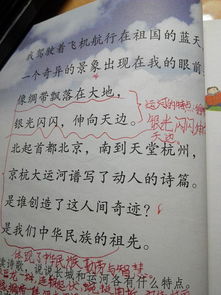 我驾驶着飞机航行在祖国的蓝天
一个奇异的景象出现在我的眼前
像绸带飘落在大地，
银光闪闪，伸向天边。
运河的特点：
银光闪闪
天边
北起首都北京，南到天堂杭州，
京杭大运河谱写了动人的诗篇。
是谁创造了这人间奇迹？
是我们中华民族的祖先。
体现了中华民族勤劳与智慧
读诗歌，说说长城和运河各有什么特点。